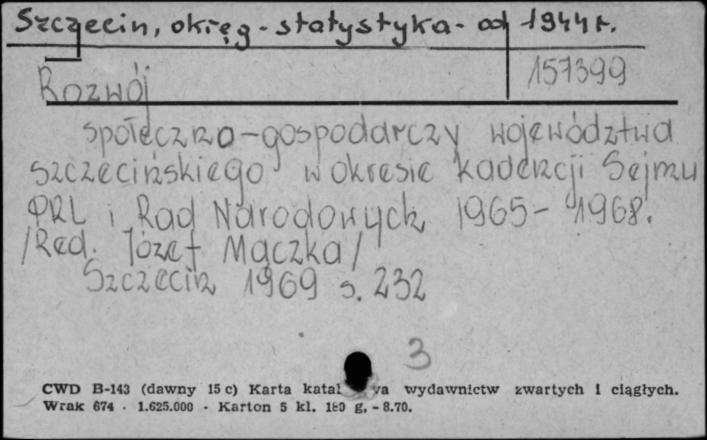 Szczecin, okręg - statystyka - od 1944 r.
157399
Rozwój
społeczno-gospodarczy województwa
szczecińskiego w okresie kadencji Sejmu
PRL i Rad Narodowych 1965-1968.
/Red. Józef Mączka/
Szczecin 1969 s. 232
3
CWD B-143 (dawny 15 c) Karta katal wa wydawnictw zwartych i ciągłych.
Wrak 674 · 1.625.000 · Karton 5 kl. 180 g. - 8.70.